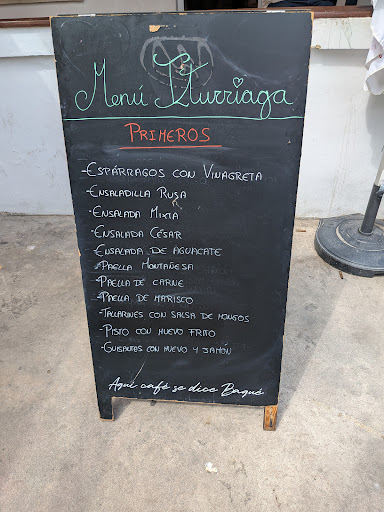 Menú Iturriaga
PRIMEROS
-ESPÁRRAGOS CON VINAGRETA
-ENSALADILLA RUSA
-ENSALADA MIXTA
-ENSALADA CÉSAR
-ENSALADA DE AGUACATE
-PAELLA MONTAÑESA
-PAELLA DE CARNE
-PAELLA DE MARISCO
-TALLARINES CON SALSA DE HONGOS
-PISTO CON HUEVO FRITO
-GUISANTES CON HUEVO Y JAMÓN
Aquí café se dice Baqué